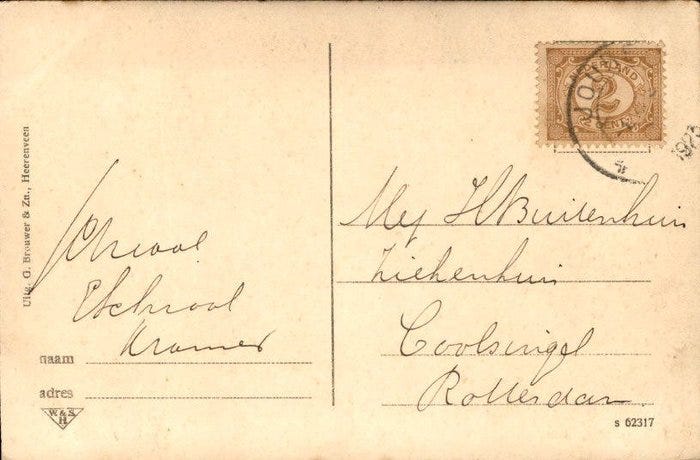 Uitg. G. Brouwer & Zn., Heerenveen
NEDERLAND
2
CENT
JOU
1923
Mej H Buitenhuis
Ziekenhuis
Coolsingel
Rotterdam
E Schraal
Kramer
naam
adres
W & S
H
s 62317